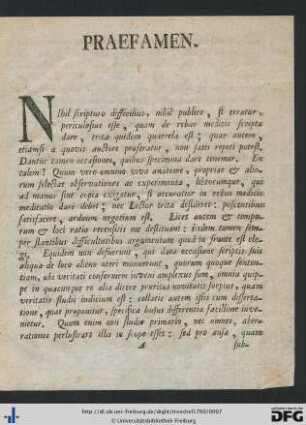 PRAEFAMEN.
Nihil scripturo difficilius, nihil publico, si erratur,
periculosius esse, quam de rebus medicis scripta
dare, trita quidem querela est; quae autem,
etiamsi a quovis auctore proferatur, non satis repeti potest.
Dantur tamen occasiones, quibus specimina dare tenemur. En
talem! Quum vero omnino viva anatome, propriae & alio-
rum selectae observationes ac experimenta, librorumque, qui
ad manus sint copia exigatur, si accuratior in rebus medicis
meditatio dari debet; nec Lector trita desideret: poscentibus
satisfacere, arduum negotium est. Licet autem & tempo-
rum & loci ratio recensitis me destituant: iisdem tamen sem-
per stantibus difficultatibus argumentum quod in fronte est ele-
gi. Equidem non defuerunt, qui data occasione scriptis suis
aliqua de loco alieno uteri monuerunt, quorum quoque senten-
tiam, ubi veritati conformem inveni amplexus sum, omnia quip-
pe in quacunque re alia dicere pruritus novitatis forsitan, quam
veritatis studii indicium est: collatis autem istis cum disserta-
tione, quae proponitur, specifica hujus differentia facillime inve-
nietur. Quum enim non studio primario, nec omnes, aber-
rationes perlustrare illis in scopo esset: sed pro ausa, quam
A
sub-
http://dl.ub.uni-freiburg.de/diglit/truschell1760/0007
© Universitätsbibliothek Freiburg
gefördert durch die
DFG